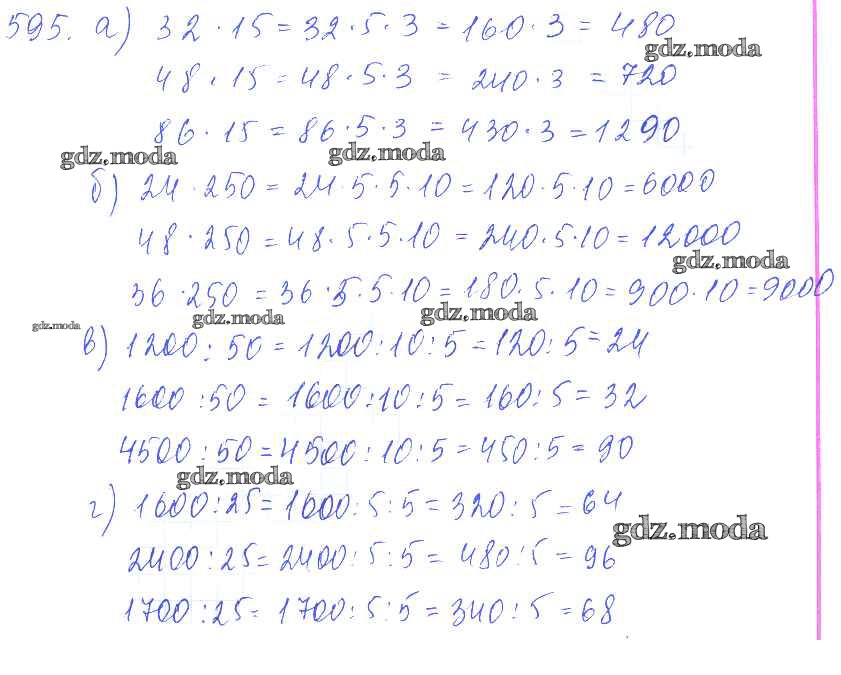 595. а) 32 · 15 = 32 · 5 · 3 = 160 · 3 = 480
gdz.moda
48 · 15 = 48 · 5 · 3 = 240 · 3 = 720
86 · 15 = 86 · 5 · 3 = 430 · 3 = 1290
gdz.moda gdz.moda
б) 24 · 250 = 24 · 5 · 5 · 10 = 120 · 5 · 10 = 6000
48 · 250 = 48 · 5 · 5 · 10 = 240 · 5 · 10 = 12000
gdz.moda
36 · 250 = 36 · 5 · 5 · 10 = 180 · 5 · 10 = 900 · 10 = 9000
gdz.moda gdz.moda gdz.moda
в) 1200 : 50 = 1200 : 10 : 5 = 120 : 5 = 24
1600 : 50 = 1600 : 10 : 5 = 160 : 5 = 32
4500 : 50 = 4500 : 10 : 5 = 450 : 5 = 90
gdz.moda
г) 1600 : 25 = 1600 : 5 : 5 = 320 : 5 = 64
gdz.moda
2400 : 25 = 2400 : 5 : 5 = 480 : 5 = 96
1700 : 25 = 1700 : 5 : 5 = 340 : 5 = 68